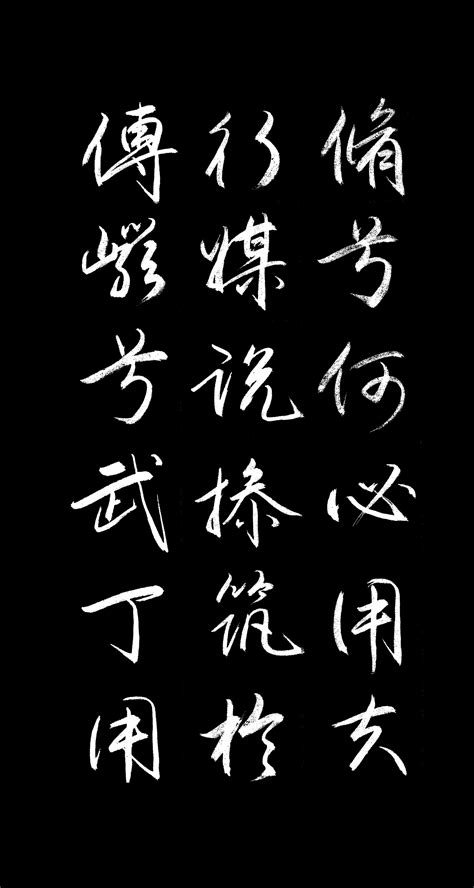 脩兮何必用夫
行媒说操筑於
傅巖兮武丁用